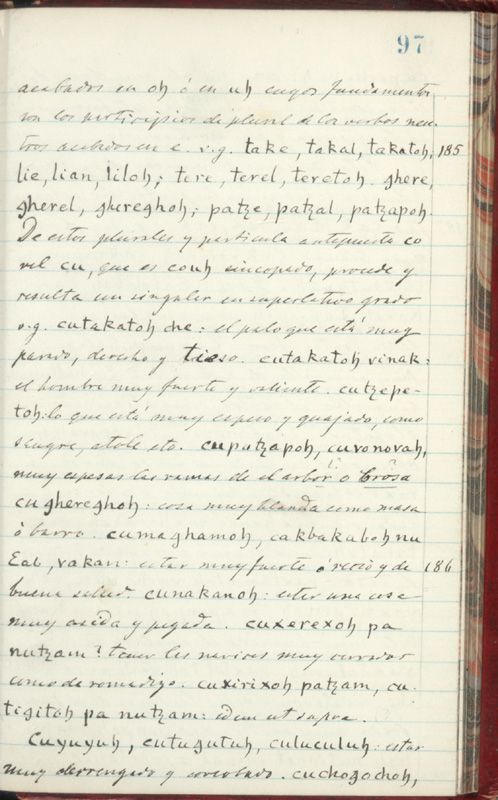 97
acabados en oh ó en uh cuyos fundamentos
son los participios de plural de los verbos neu-
tros acabados en e. v.g. take, takal, takatoh, 185
lie, lian, liloh; tere, terel, teretoh. ghere,
gherel, ghereghoh; patze, patzal, patzapoh
De estos plurales y particula antepuesta co
vel cu, que es couh sincopado, procede y
resulta un singular en superlativo grado
v.g. cutakatoh che: el palo que está muy
parado, derecho y tieso. cutakatoh vinak:
el hombre muy fuerte y valiente. cutzepe-
toh: lo que está muy espeso y quajado, como
sangre, atole etc. cupatzapoh, cuvonovoh,
muy espesas las ramas de el arbor ó Brosa
cughereghoh: cosa muy blanda como masa
ò barro. cumaghamoh, cakbakaboh nu
Eab, vakan: estar muy fuerte ó recio y de 186
buena salud. cunakanoh: estar una cosa
muy asida y pegada. cuxerexoh pa
nutzam? tener las narices muy cerradas
como de romadizo. cuxirixoh patzam, cu-
tigitoh pa nutzam: idem ut supra.
Cuyuyuh, cutugutuh, culuculuh: estar
muy derrengado y corcobado. cuchogochoh,